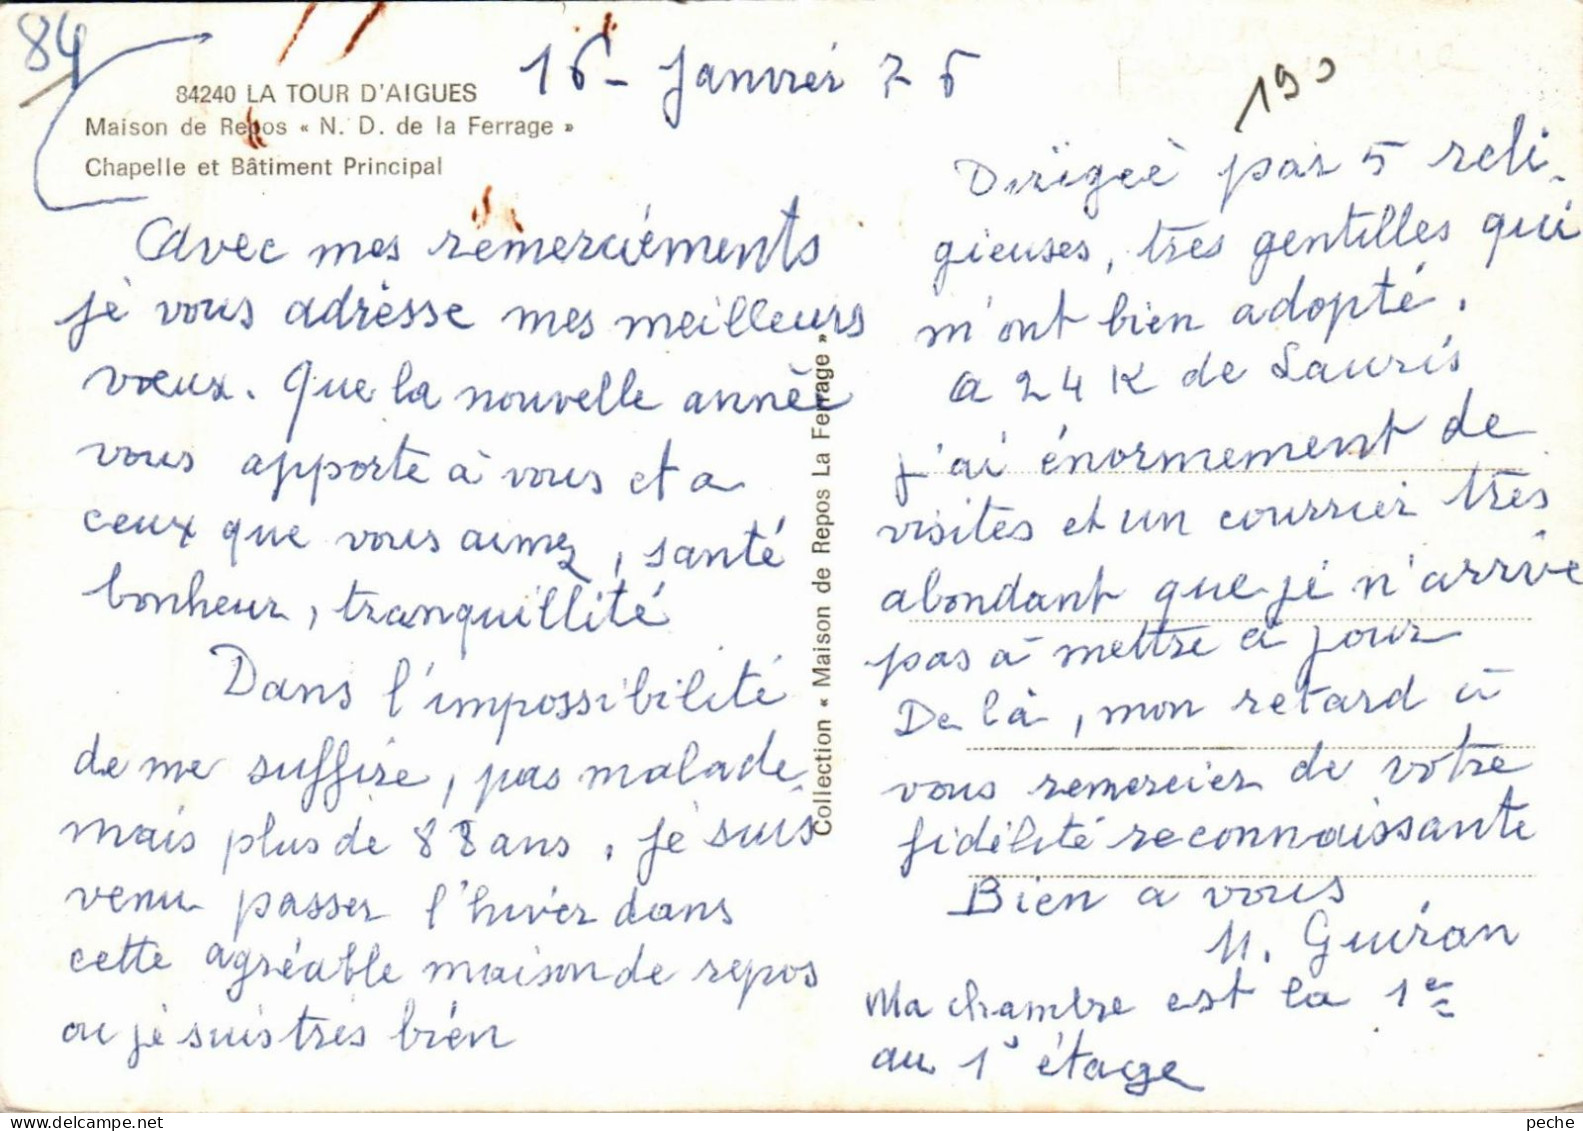 84
84240 LA TOUR D'AIGUES
Maison de Repos « N. D. de la Ferrage »
Chapelle et Bâtiment Principal
16 - Janvier 76
190
Avec mes remerciements
je vous adresse mes meilleurs
vœux. Que la nouvelle année
vous apporte à vous et a
ceux que vous aimez, santé
bonheur, tranquillité
Dans l'impossibilité
de me suffire, pas malade
mais plus de 88 ans, je suis
venu passer l'hiver dans
cette agréable maison de repos
ou je suis très bien
Collection « Maison de Repos La Ferrage »
Dirigée par 5 reli-
gieuses, très gentilles qui
m'ont bien adopté.
a 24 K de Lauris
j'ai énormément de
visites et un courrier très
abondant que je n'arrive
pas à mettre a jour
De là, mon retard à
vous remercier de votre
fidélité reconnaissante
Bien a vous
M. Guiran
Ma chambre est la 1e
au 1° étage
peche